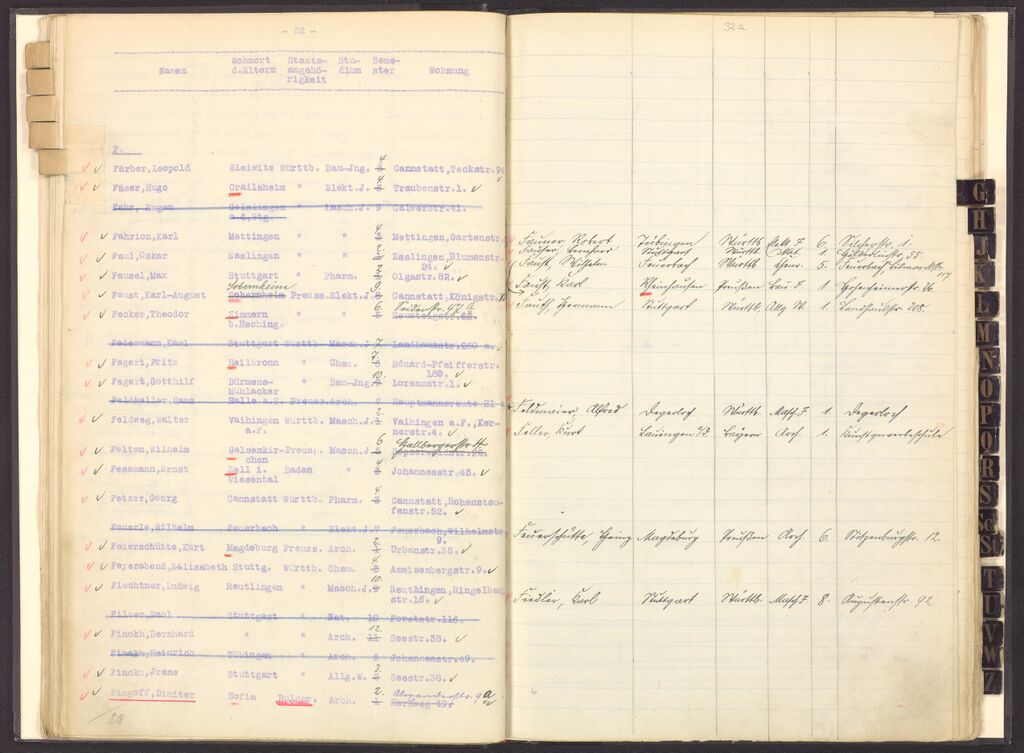 - 32 -
Namen Wohnort d.Eltern Staats-angehö-rigkeit Stu-dium Seme-ster Wohnung
F.
Färber,Leopold Gleiwitz Württb. Bau-Jng. 4 3 Cannstatt,Teckstr.94
Fäser,Hugo Crailsheim " Elekt.J. 4 3 Traubenstr.1.
Fahr, Eugen Geislingen " Masch.J 9 Calwerstr.41.
a.d.Stg.
Fahrion,Karl Mettingen " " 4 3 Mettingen,Gartenstr.
Faul,Oskar Esslingen " " 2. 1 Esslingen,Blumenstr.
24.
Fausel,Max Stuttgart " Pharm. 2 1 Olgastr.82.
Sobernheim
Faust,Karl-August Preuss. Elekt.J. 9. 8 Cannstatt,Königstr.
Fecker,Theodor Zimmern " " 6. 5 Seidenstr. 47 A
b.Heching.
Federmann,Karl Stuttgart Württb Masch.J. 7 Landhausstr.250 a.
Fegert,Fritz Heilbronn " Chem. 7 Eduard-Pfeifferstr.
180.
Fegert,Gotthilf Dürmenz- " Bau-Jng. 10. Lorenzstr.1.
Mühlacker
Feldkeller,Hans Halle a.S. Preuss. Arch. 7 Hauptmannsreute,21
Feldweg,Walter Vaihingen Württb Masch.J. 2. 1 Vaihingen a.F.,Ker-
a.F. nerstr.4.
Felten,Wilhelm Gelsenkir-Preuss. Masch.J. 6 5 Hallbergerstr.
chen
Fessmann,Ernst Zell i. Baden " 8 Johannesstr.43.
Wiesental
Fetzer,Georg Cannstatt Württb. Pharm. 4. 3 Cannstatt,Hohenstau-
fenstr.52.
Feuerle,Wilhelm Feuerbach " Elekt.J. 7 Feuerbach,Wilhelmstr
9.
Feuerschütte,Kurt Magdeburg Preuss. Arch. 2. 1 Urbanstr.35.
Feyerabend,Elisabeth Stuttg. Württb. Chem. 4 3 Ameisenbergstr.9.
Fiechtner,Ludwig Reutlingen " Masch.J. 10. 9 Reutlingen,Ringelbac
str.15.
Stuttgart " Nat. 10 Forststr.116.
Finckh,Bernhard " " Arch. 12. 11 Seestr.38.
Finckh,Heinrich Tübingen " Arch. 6 Johannesstr.49.
Finckh,Irene Stuttgart " Allg.W. 3. Seestr.38.
Fingoff,Dimiter Sofia Bulgar. Arch. 2. 1 Alexanderstr. 9a
Herdweg 49.
/28
32a
Fauner Robert Tübingen Württb. Elekt. J. 6. Silcherstr. 1.
Stuttgart Württb. 1.
Faust, Wilhelm Feuerbach Württb. Chem. 5. Feuerbach, Bismarckstr. 117
Faust, Karl Rheinhausen Preußen Bau J. 1
Fauth, Hermann Stuttgart Württb. Allg. W. 1. Landhausstr. 208.
Feldmaier, Alfred Degerloch Württb. Masch. J. 1. Degerloch
Feller, Kurt Lauingen a/d. Bayern Arch. 1. Kunstgewerbeschule
Feuerschütte, Heinz Magdeburg Preußen Arch. 6. Sitzenburgstr. 12.
Fiedler, Karl Stuttgart Württb. Masch. J. 8. Augustenstr. 92
G
H
J
K
L
M
N
O
P
Q
R
S
Sch
St
T
U
V
W
Z